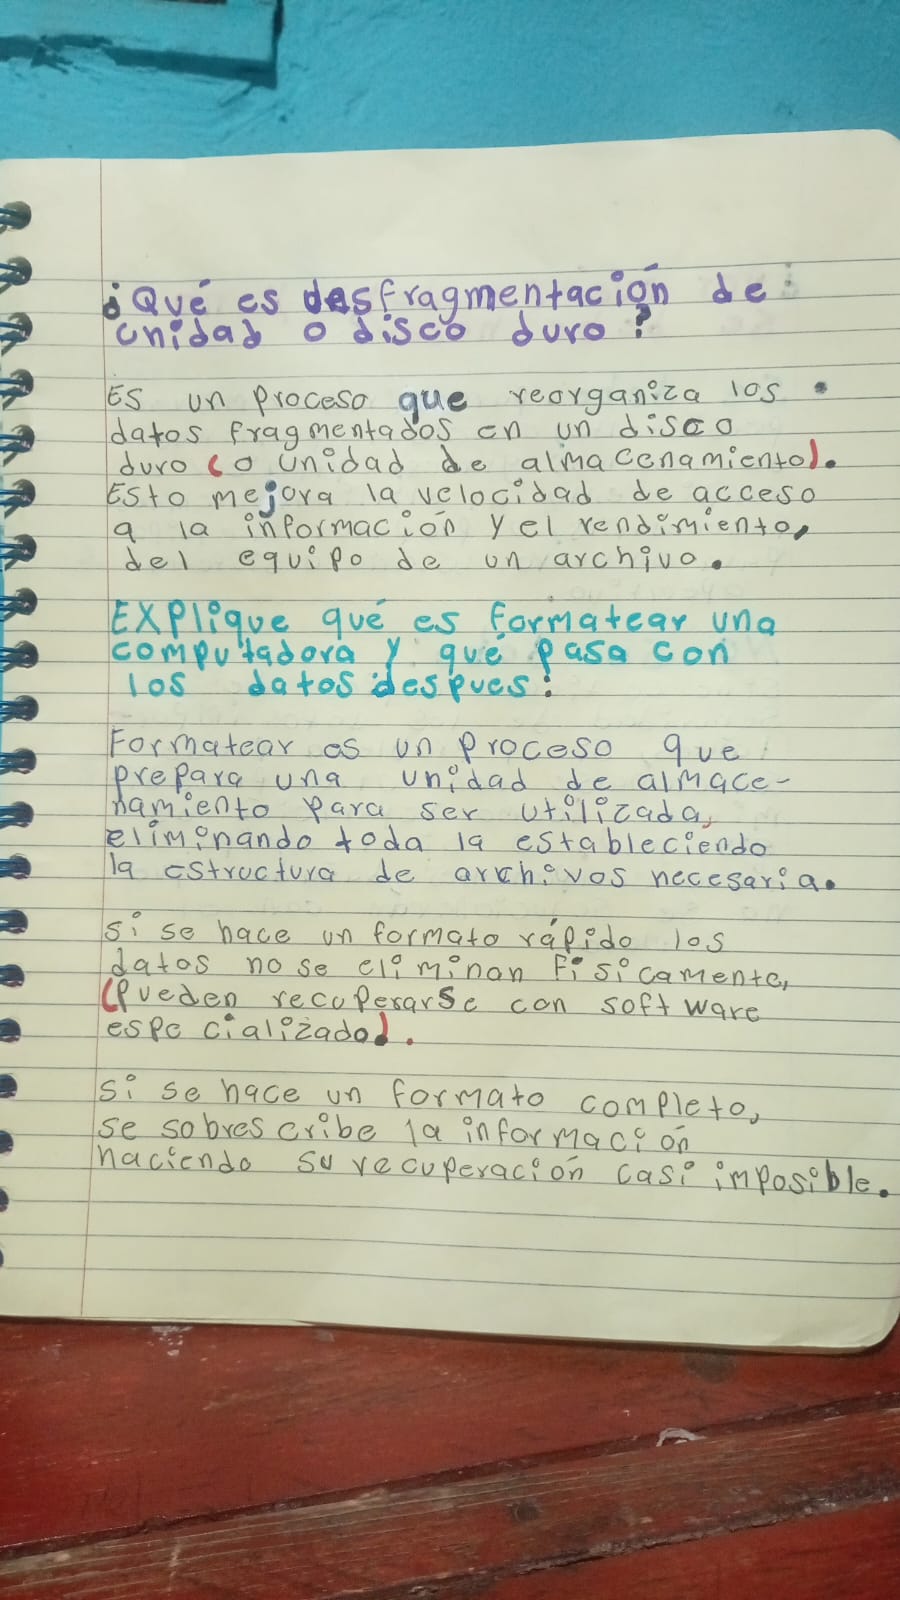 ¿Qué es desfragmentación de
unidad o disco duro?
Es un proceso que reorganiza los
datos fragmentados en un disco
duro (o unidad de almacenamiento).
Esto mejora la velocidad de acceso
a la información y el rendimiento,
del equipo de un archivo.
Explique qué es formatear una
computadora y qué pasa con
los datos despues:
Formatear es un proceso que
prepara una unidad de almace-
namiento para ser utilizada,
eliminando toda la estableciendo
la estructura de archivos necesaria.
si se hace un formato rápido los
datos no se eliminan Fisicamente,
(Pueden recuperarse con software
especializado).
si se hace un formato completo,
se sobrescribe la información
haciendo su recuperación casi imposible.